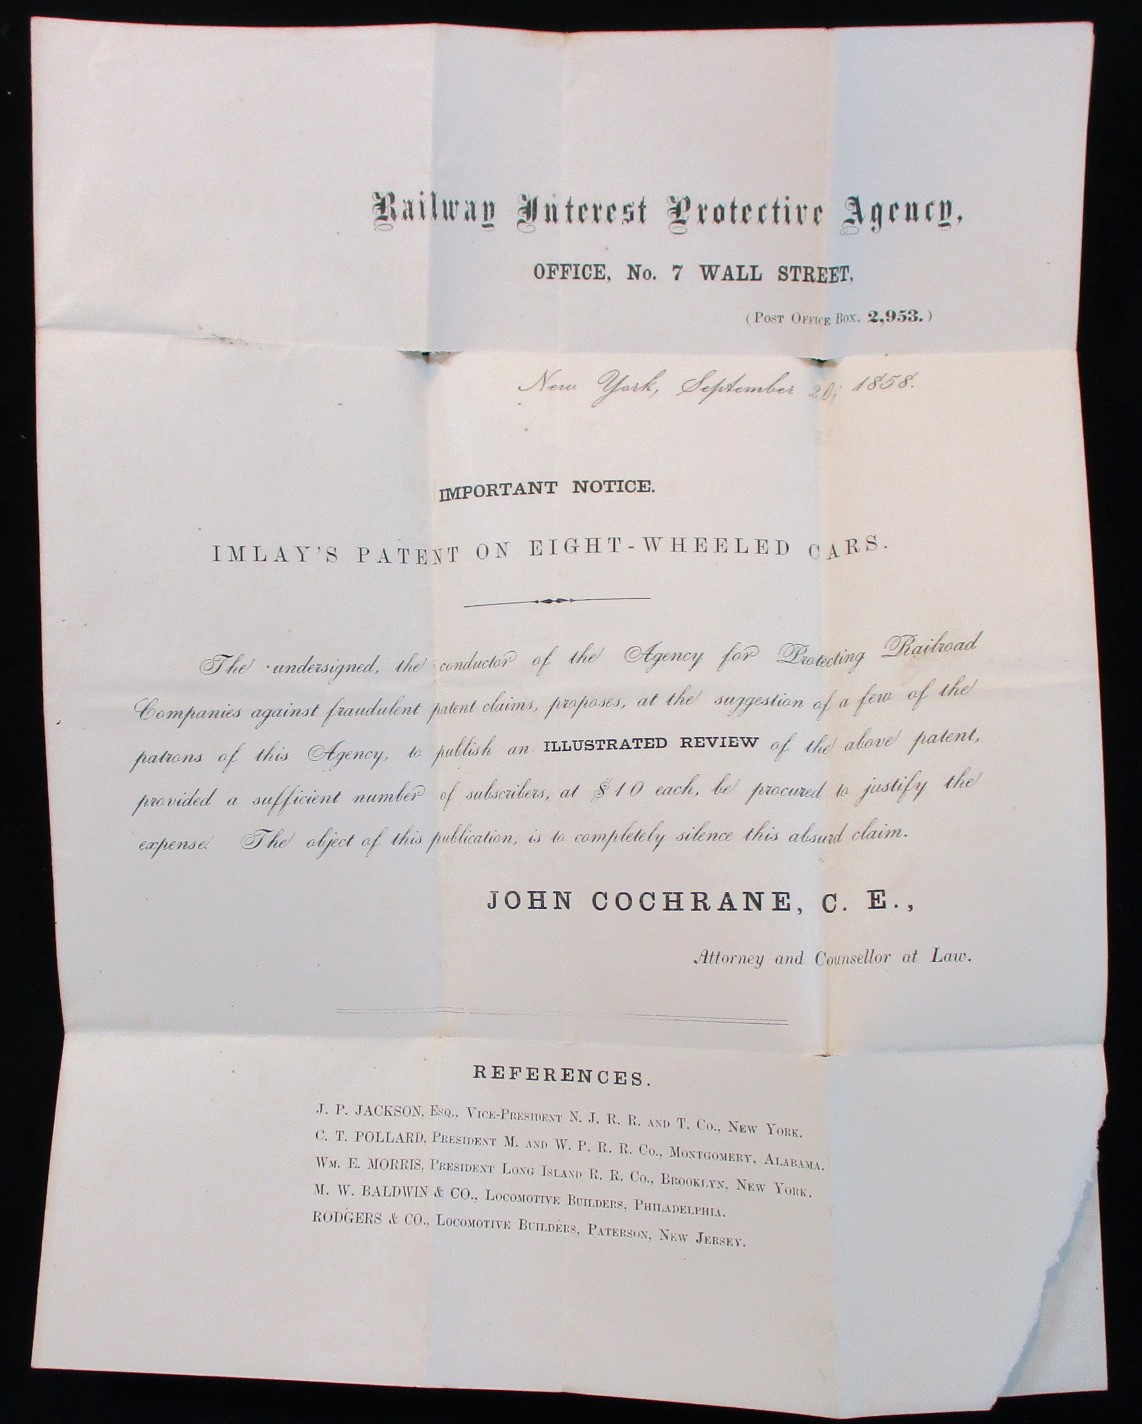 Railway Interest Protective Agency,
OFFICE, No. 7 WALL STREET,
(Post Office Box, 2,953.)
New York, September 20, 1858.
IMPORTANT NOTICE.
IMLAY'S PATENT ON EIGHT-WHEELED CARS.
The undersigned, the conductor of the Agency for Protecting Railroad
Companies against fraudulent patent claims, proposes, at the suggestion of a few of the
patrons of this Agency, to publish an ILLUSTRATED REVIEW of the above patent,
provided a sufficient number of subscribers, at $10 each, be procured to justify the
expense. The object of this publication, is to completely silence this absurd claim.
JOHN COCHRANE, C. E.,
Attorney and Counsellor at Law.
REFERENCES.
J. P. JACKSON, Esq., Vice-President N. J. R. R. and T. Co., New York.
C. T. POLLARD, President M. and W. P. R. R. Co., Montgomery, Alabama.
Wm. E. MORRIS, President Long Island R. R. Co., Brooklyn, New York.
M. W. BALDWIN & CO., Locomotive Builders, Philadelphia.
RODGERS & CO., Locomotive Builders, Paterson, New Jersey.